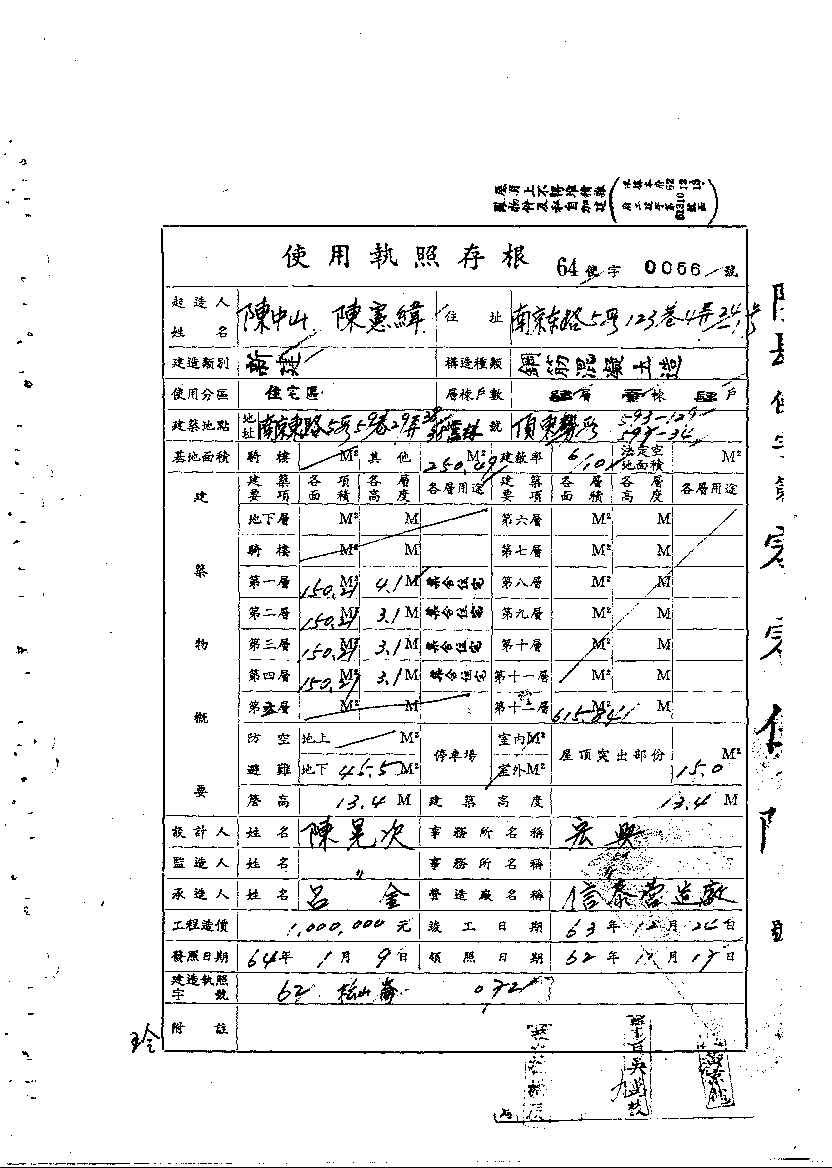 屋頂上不得堆積雜
使用執照存根 64使字 0056 號
起造人姓名 陳中山 陳憲緯 住址 南京東路5号123巷4弄24-1号
建造類別 新建 構造種類 鋼筋混凝土造
使用分區 住宅區 層棟戶數 肆層 壹棟 肆戶
建築地點 地址 南京東路5号59巷29弄 號 頂東勢段 593-129 595-34
基地面積 騎樓 M² 其他 250.49 M² 建蔽率 6/10 法定空地面積 M²
建築物概要 建築要項 各項面積 各層高度 各層用途 建築要項 各層面積 各層高度 各層用途
地下層 M² M 第六層 M² M
騎樓 M² M 第七層 M² M
第一層 150.21 M² 4.1 M 集合住宅 第八層 M² M
第二層 150.21 M² 3.1 M 集合住宅 第九層 M² M
第三層 150.21 M² 3.1 M 集合住宅 第十層 M² M
第四層 150.21 M² 3.1 M 集合住宅 第十一層 M² M
第五層 M² M 第十二層 615.841 M² M
防空避難 地上 M² 停車場 室內M² 屋頂突出部份 15.0 M²
地下 45.5 M² 室外M²
簷高 13.4 M 建築高度 13.4 M
設計人 姓名 陳晃次 事務所名稱 宏興
監造人 姓名 〃 事務所名稱 〃
承造人 姓名 呂金 營造廠名稱 信泰營造廠
工程造價 1,000,000 元 竣工日期 63年12月24日
發照日期 64年1月9日 領照日期 62年11月17日
建造執照字號 62 松山 072
附註
玲